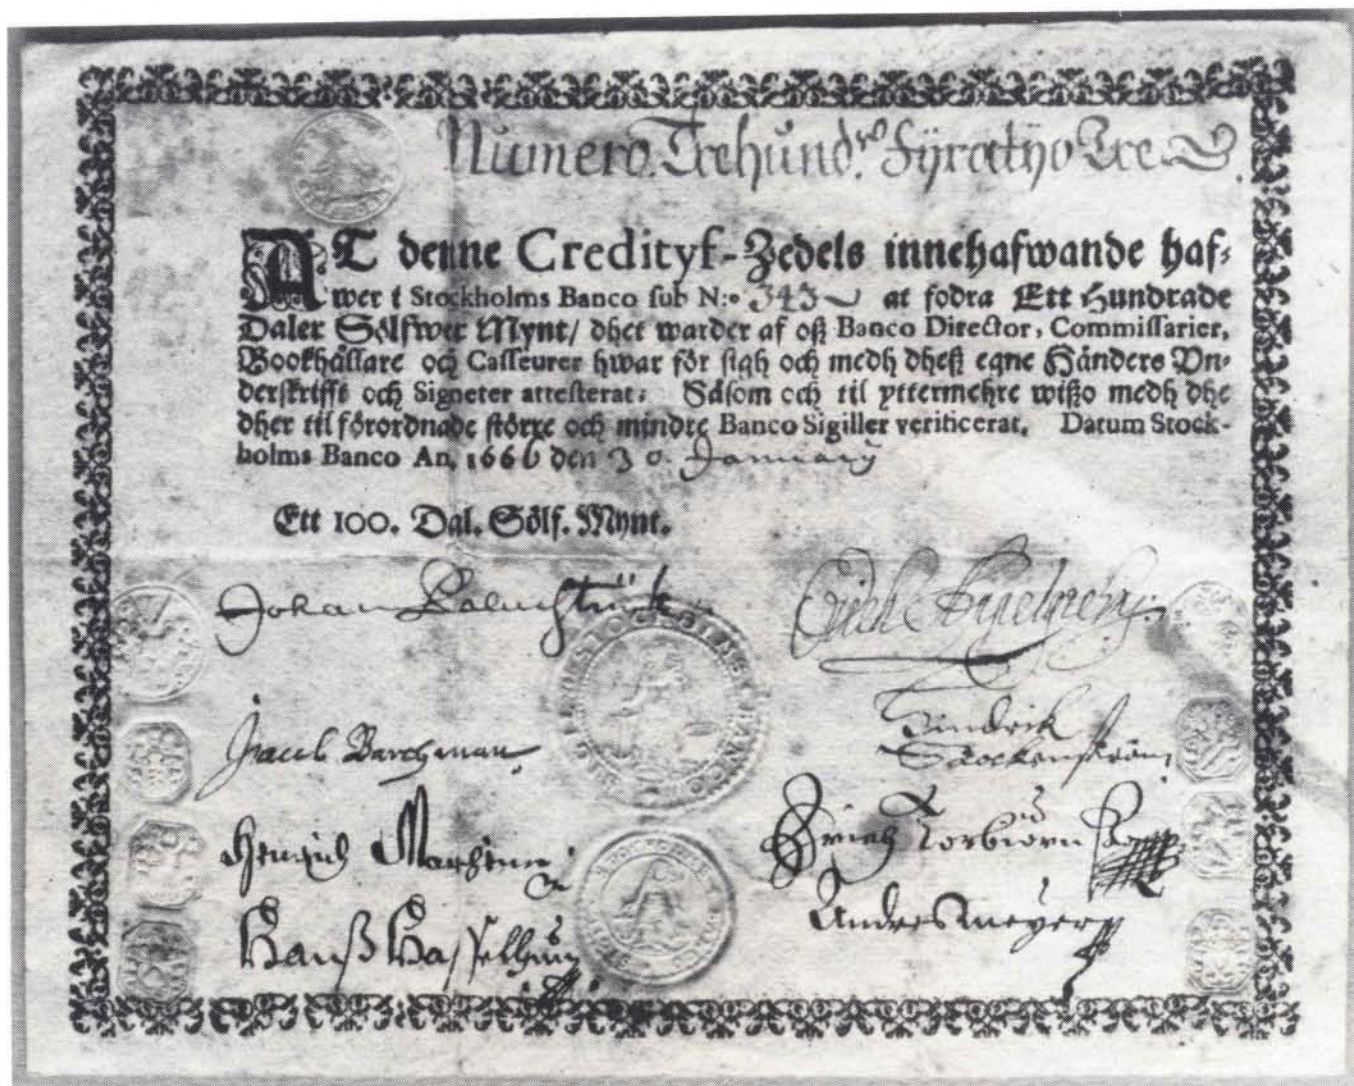 Numero. Trehund.ᵈᵉ Fÿratijo Tre.
AT denne Credityf-Zedels innehafwande haf-
wer i Stockholms Banco sub N:o 343 at fodra Ett Hundrade
Daler Sölfwer Mynt/ dhet warder af oß Banco Director, Commissarier,
Bookhållare och Casseurer hwar för sigh och medh dheß egne Händers Vn-
derskrifft och Signeter attesterat; Såsom och til yttermehre wißo medh dhe
dher til förordnade större och mindre Banco Sigiller verificerat. Datum Stock-
holms Banco An. 1666 den 30. Januarÿ
Ett 100. Dal. Sölf. Mynt.
Johan Palmstruck
STOCKHOLMS BANCO
Jacob Barchman
Hindrik
Hinrich
Erich Torbiörn
Hanß
Anders Meyer